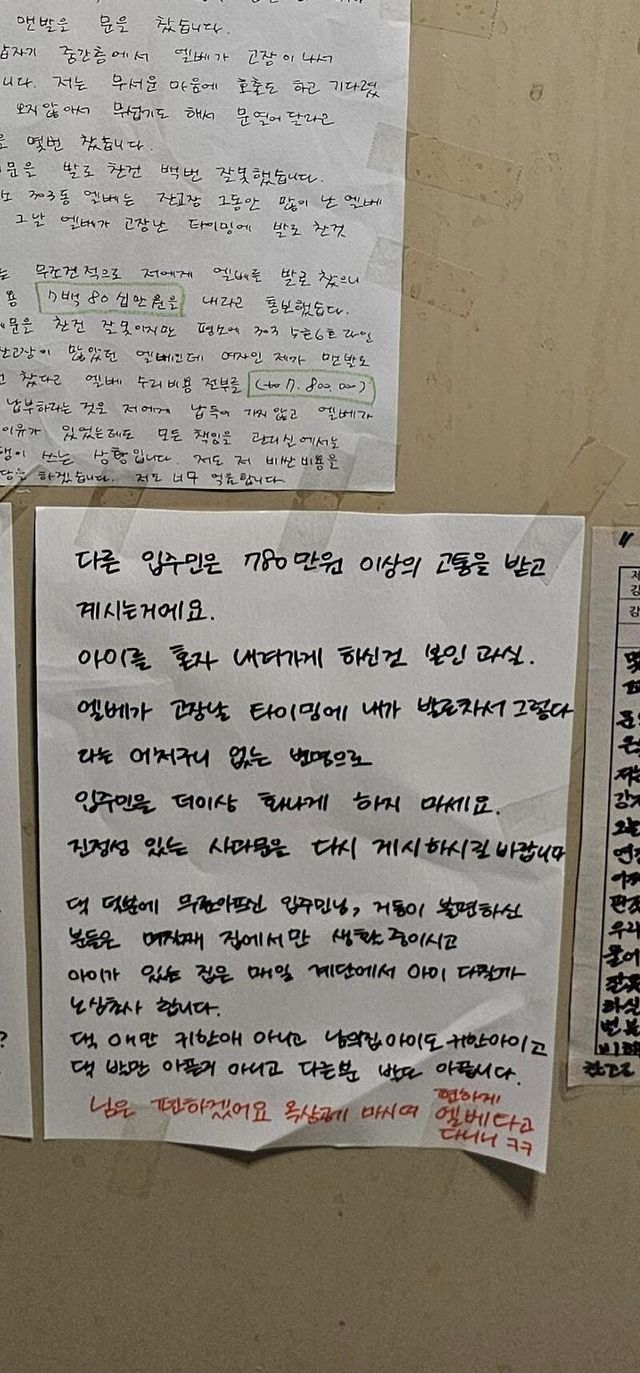 맨발을 문을 찼습니다.
갑자기 중간층에서 엘베가 고장이 나서
니다. 저는 무서운 마음에 호출도 하고 기다렸
오지 않아서 무섭기도 해서 문열어 달라고
몇번 찼습니다.
문을 발로 찬건 백번 잘못했습니다.
303동 엘베는 잔고장 그동안 많이 난 엘베
그날 엘베가 고장난 타이밍에 발로 찬것
는 무조건적으로 저에게 엘베를 발로 찼으니
용 7백 80 십만원을 내라고 통보했습니다.
문은 찬건 잘못이지만 평소에 303 5호6호 라인
잔고장이 많았던 엘베인데 여자인 제가 맨발로
찼다고 엘베 수리비용 전부를 (₩ 7.800.000)
납부하라는 것은 저에게 납득이 가지 않고 엘베가
이유가 있었는데도 모든 책임을 관리실에서는
쓰는 상황입니다. 저도 저 비싼비용을
하겠습니다. 저도 너무 억울합니다
다른 입주민은 780만원 이상의 고통을 받고
계시는거에요.
아이를 혼자 내려가게 하신건 본인 과실.
엘베가 고장날 타이밍에 내가 발로차서 그렇다
라는 어처구니 없는 변명으로
입주민을 더이상 화나게 하지 마세요.
진정성 있는 사과문은 다시 게시하시길 바랍니다
댁 덕분에 무릎아프신 입주민님, 거동이 불편하신
분들은 며칠째 집에서만 생활 중이시고
아이가 있는 집은 매일 계단에서 아이 다칠까
노심초사 합니다.
댁 애만 귀한애 아니고 남의집 아이도 귀한아이고
댁 발만 아픈거 아니고 다른분 발도 아픕니다.
님은 편하겠어요 옥상공기 마시며 편하게
엘베타고
다니니 ㅋㅋ